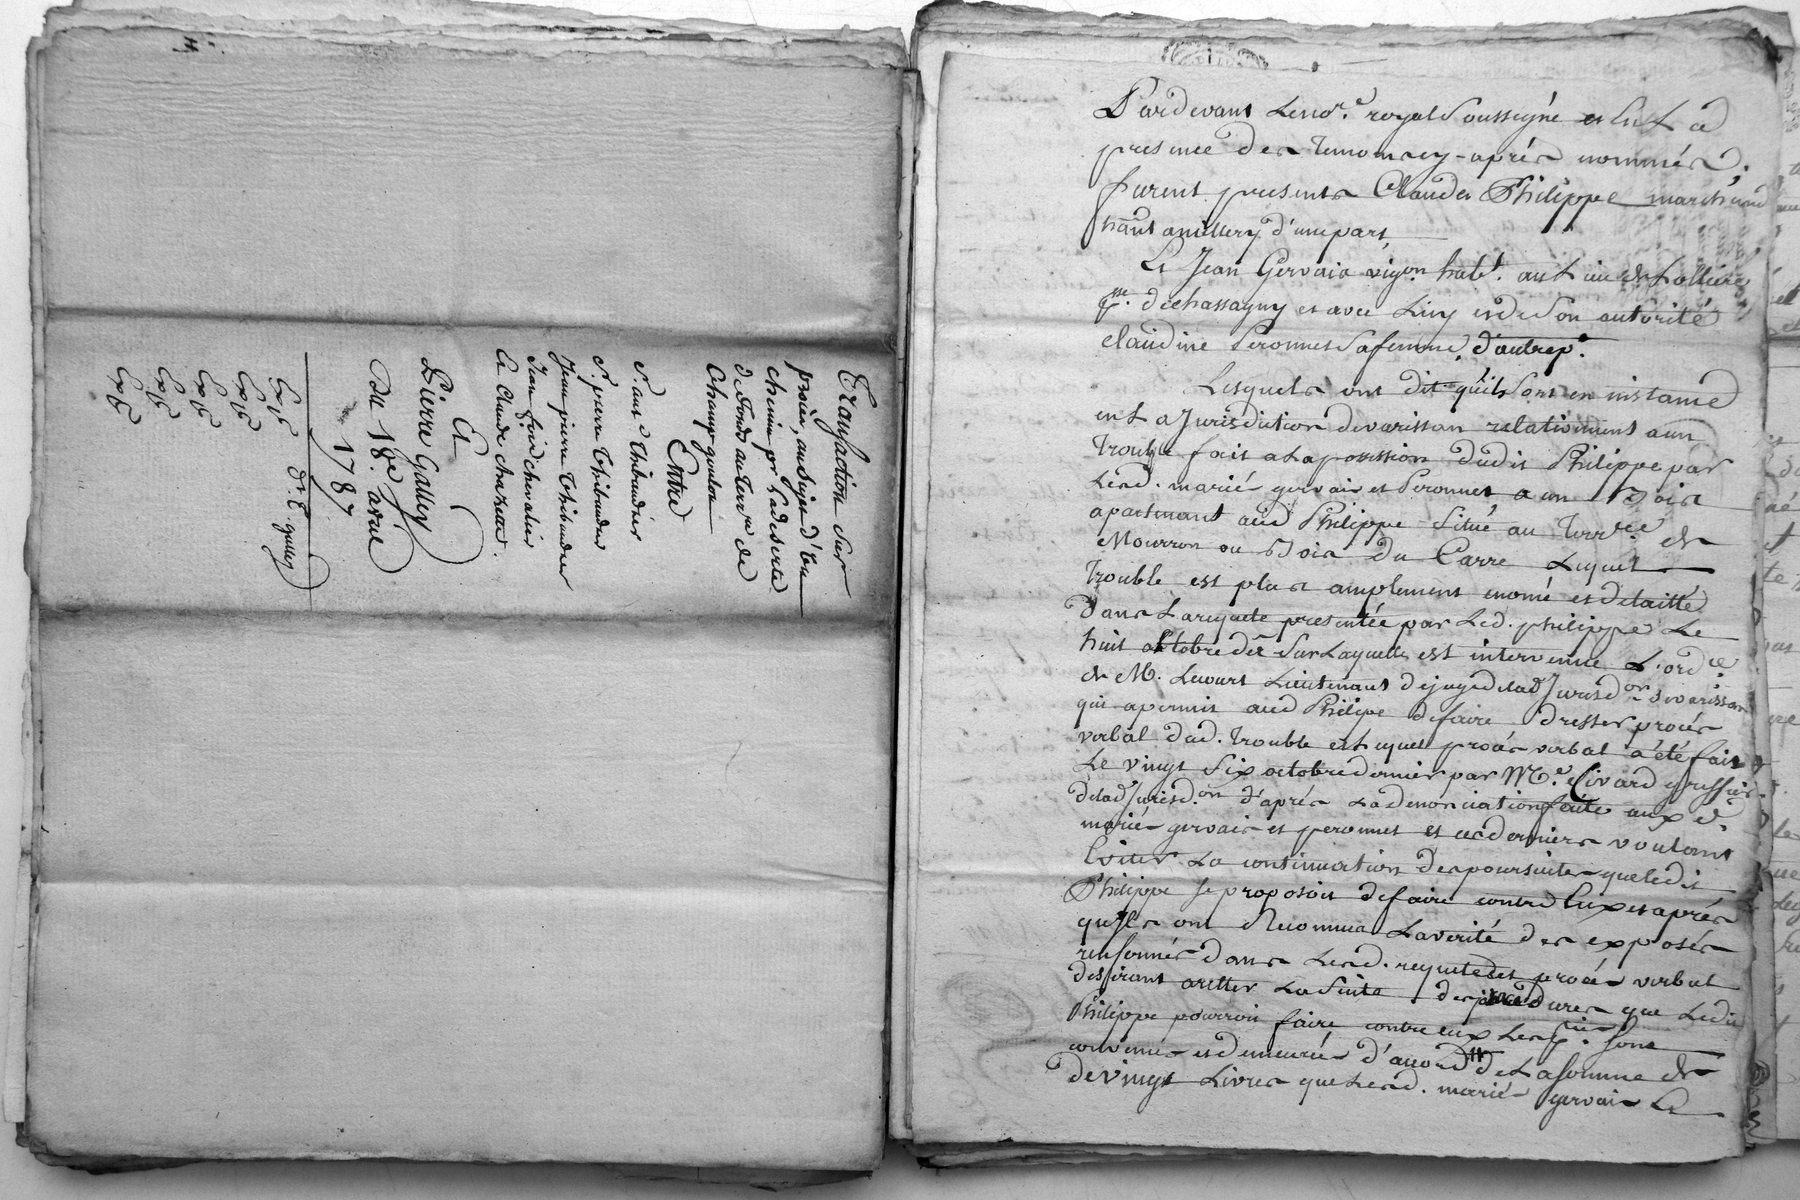 Transaction sur
procès, au sujet d'un
chemin pr la deserte
de fonds au terre de
Champ goulon
Entre
Sr. ant. Thibaudier
Sr. pierre Thibaudier
Jean pierre Thibaudier
Jean fr. chevalier
et Claude chazette.
Et
Pierre Galley
Du 18e avril
1787
Exp. d. E galley
Exp.
Exp.
Exp.
Exp.
Exp.
Pardevant Le nore. royal Soussigné et En La
presence des temoins cy-après nommés,
furent presents Claude Philippe marchand
hant a millery d'une part
Et Jean Gervais vigon. habt. au Lieu de
psse. de chassagny et avec Luy et de Son autorité
claudine Peronnet Sa femme, d'autre pt.
Lesquels ont dit qu'ils Sont en instance
en La Jurisdiction de varissan relativement a un
trouble fait a La possession dudit Philippe par
Lesd. mariés gervais et Peronnet a un Bois
apartenant aud Philippe Situé au Terre. de
Mourron ou Bois du Carre Lequel
trouble est plus amplement enoncé et detaillé
dans La requete presentée par Led. philippe Le
huit octobre der. Sur Laquelle est intervenue L'ordce.
de M. Lecourt Lieutenant de juge de lad Jurisdon. de varissan
qui a permis aud Philipe de faire dresser procés
verbal dud. trouble et Lequel procés verbal a été fait
Le vingt Six octobre dernier par Me. Civard greffier
de lad Jurisdon. d'aprés La denonciation faite aux d.
mariés gervais et peronnet et ces derniers voulant
Eviter La continuation des poursuites que ledit
Philippe se proposoit de faire contre Eux et aprés
qu'Ils ont Reconnu La verité des exposés
renfermés dans Lesd. requete et procés verbal
desirant aretter La Suite des procedures que Ledit
Philippe pourroit faire contre eux Les pties. sont
convenues et demeurées d'accord de La somme de
de vingt Livres que Lesd. mariés gervais Et